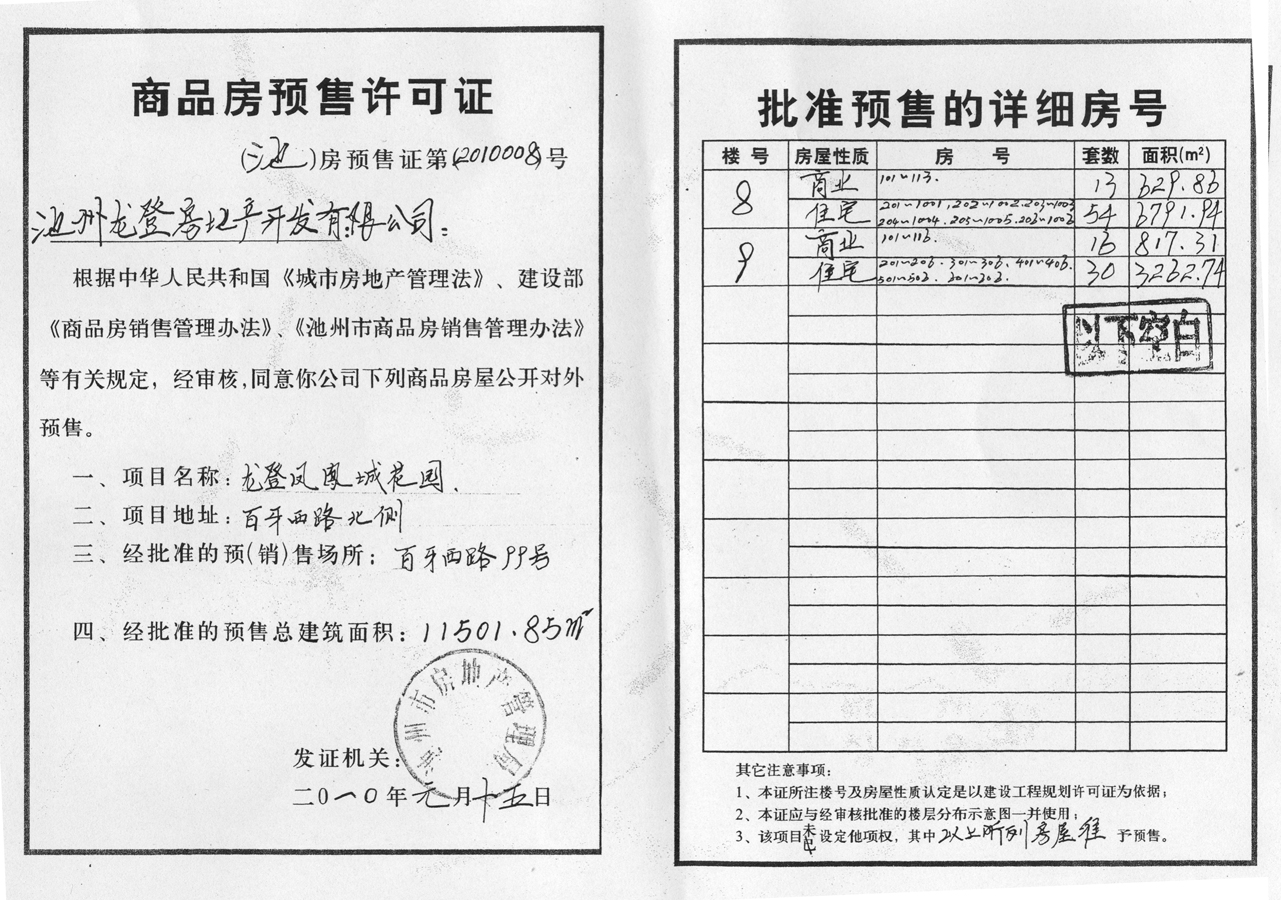 商品房预售许可证
(池)房预售证第(2010008)号
池州龙登房地产开发有限公司：
根据中华人民共和国《城市房地产管理法》、建设部
《商品房销售管理办法》、《池州市商品房销售管理办法》
等有关规定，经审核,同意你公司下列商品房屋公开对外
预售。
一、项目名称：龙登凤凰城花园.
二、项目地址：百牙西路北侧
三、经批准的预(销)售场所：百牙西路99号
四、经批准的预售总建筑面积：11501.85㎡
池州市房地产管理局
发证机关：
二0一0年元月十五日
批准预售的详细房号
楼号 房屋性质 房号 套数 面积(m²)
8 商业 101~113. 13 629.86
住宅 201~1001,202~1002.203~1003
204~1004.205~1005.206~1006 54 6791.94
9 商业 101~116. 16 817.31
住宅 201~206.301~306.401~406.
501~506. 30 3262.74
以下空白
其它注意事项：
1、本证所注楼号及房屋性质认定是以建设工程规划许可证为依据；
2、本证应与经审核批准的楼层分布示意图一并使用；
3、该项目未设定他项权，其中以上所列房屋准予预售。